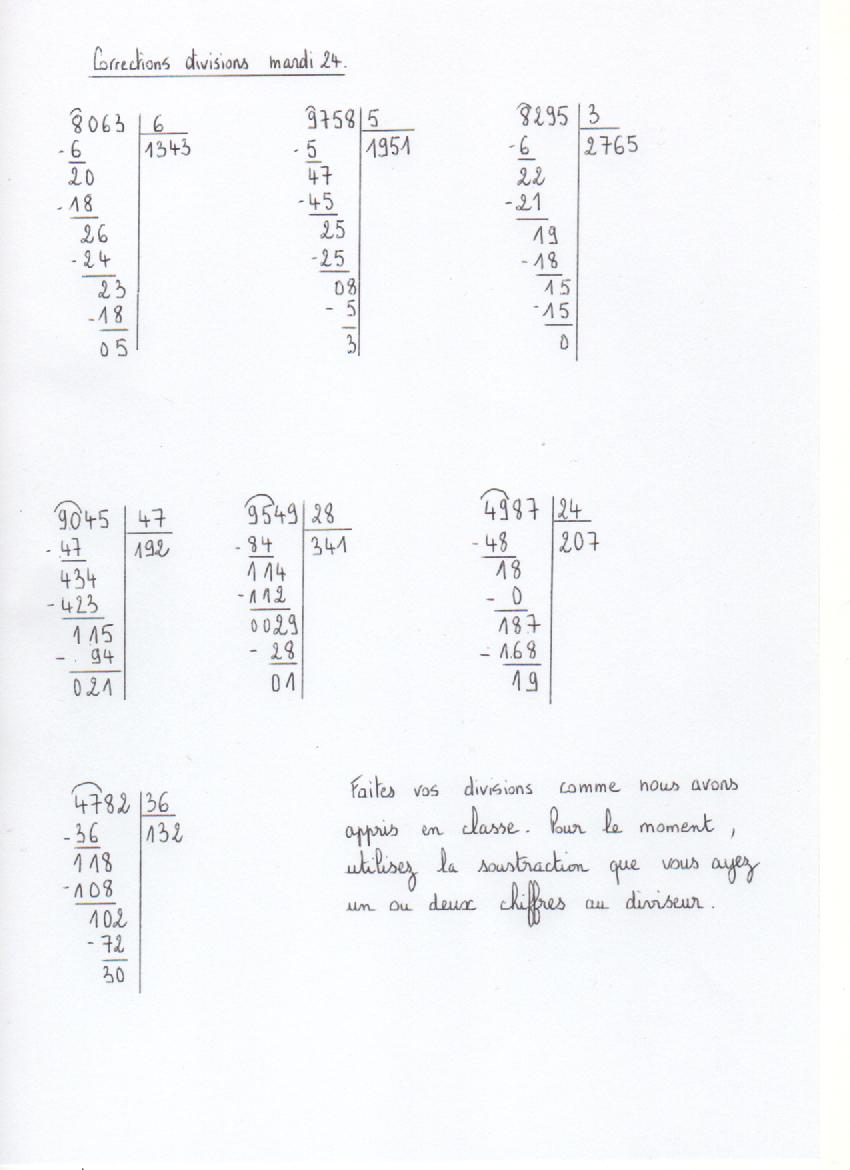 Corrections divisions mardi 24.
8063 6
-6 1343
20
-18
26
-24
23
-18
05
9758 5
-5 1951
47
-45
25
-25
08
- 5
3
8295 3
-6 2765
22
-21
19
-18
15
-15
0
9045 47
-47 192
434
-423
115
- 94
021
9549 28
-84 341
114
-112
0029
- 28
01
4987 24
-48 207
18
- 0
187
-168
19
4782 36
-36 132
118
-108
102
-72
30
Faites vos divisions comme nous avons
appris en classe. Pour le moment,
utilisez la soustraction que vous ayez
un ou deux chiffres au diviseur.